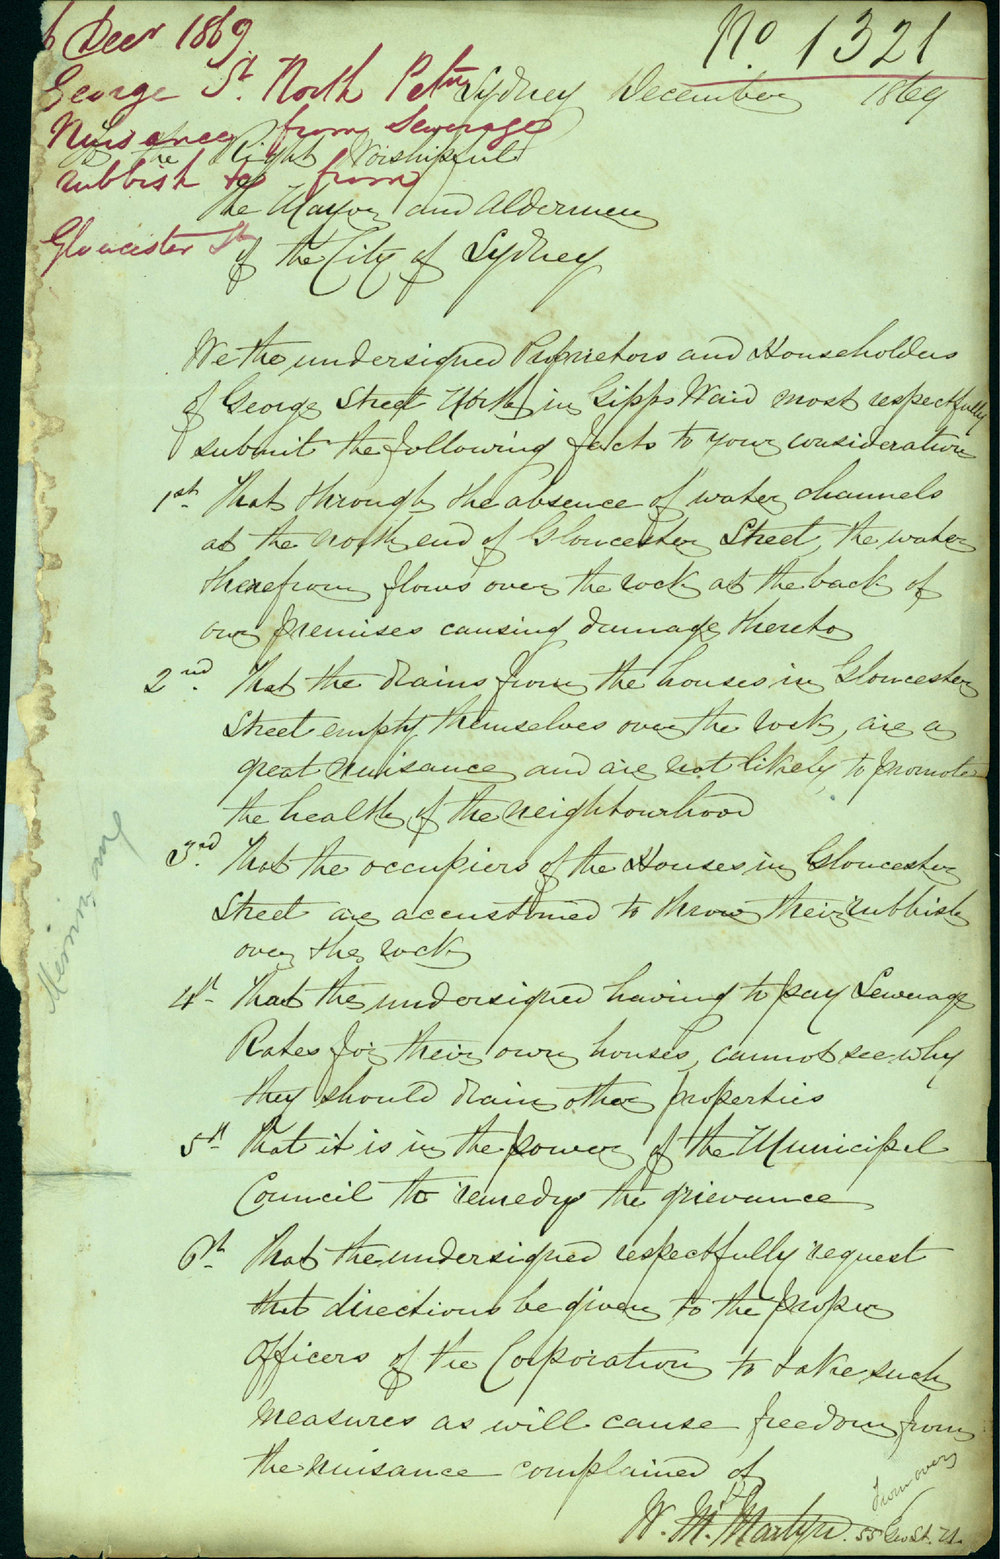 6 Decr 1869
No. 1321
George St. North Petn
Nuisance from Sewerage
rubbish &c from
Gloucester St
Sydney December 1869
To the Right Worshipful
The Mayor and Aldermen
of the City of Sydney
We the undersigned Proprietors and Householders
of George Street North, in Gipps Ward most respectfully
submit the following facts to your consideration
1st. That through the absence of water channels
at the north end of Gloucester Street, the water
therefrom flows over the rock at the back of
our premises causing damage thereto
2nd. That the drains from the houses in Gloucester
Street empty themselves over the rock, are a
great nuisance and are not likely to promote
the health of the neighbourhood
3rd. That the occupiers of the Houses in Gloucester
Street are accustomed to throw their rubbish
over the rock
4th. That the undersigned having to pay Sewerage
Rates for their own houses, cannot see why
they should drain other properties
5th. That it is in the power of the Municipal
Council to remedy the grievance
6th. That the undersigned respectfully request
that directions be given to the proper
Officers of the Corporation to take such
measures as will cause freedom from
the nuisance complained of
W. Martyn 55 Geo St. N.